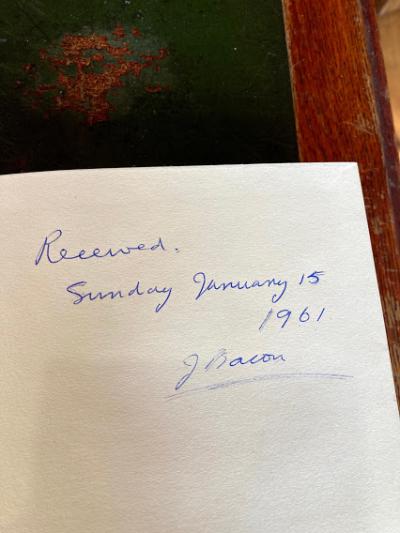 Received.
Sunday January 15
1961
J Bacon